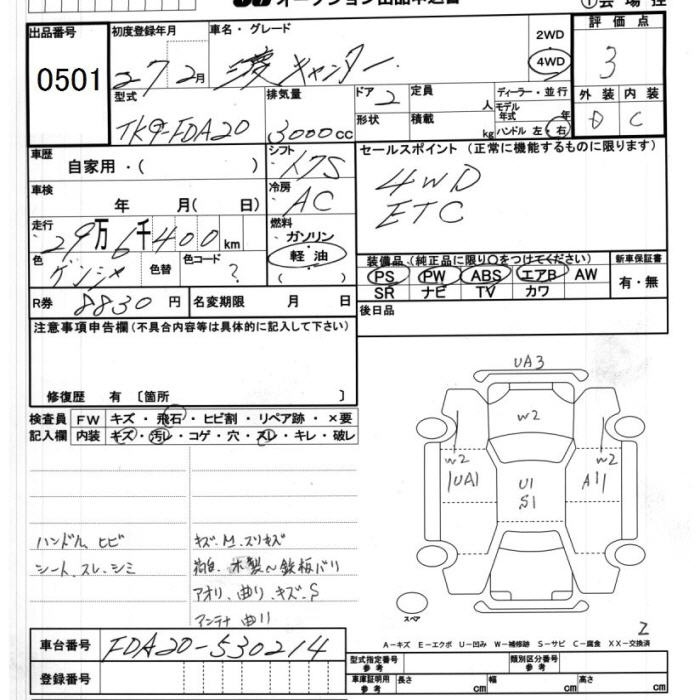 オークション出品申込書
①会場控
出品番号 初度登録年月 車名・グレード 2WD 評価点
0501 27 2月 三菱キャンター 4WD 3
型式 排気量 ドア 2 定員 人 ディーラー・並行 外装 内装
モデル年式 年
TKG-FDA20 3000cc 形状 積載 kg ハンドル 左・右 D C
車歴 シフト セールスポイント (正常に機能するものに限ります)
自家用・( ) 4WD
車検 冷房 ETC
年 月( 日) AC
走行 燃料
29万6千400km ガソリン
軽油
( )
色 色替 色コード 装備品(純正品に限り○をつけてください) 新車保証書
ゲンシャ ? PS PW ABS エアB AW 有・無
SR ナビ TV カワ
R券 8830円 名変期限 月 日 後日品
注意事項申告欄(不具合内容等は具体的に記入して下さい)
修復歴 有 〔箇所 〕
検査員 FW キズ・飛石・ヒビ割・リペア跡・×要
記入欄 内装 キズ・汚レ・コゲ・穴・スレ・キレ・破レ
UA3
W2
W2 W2
UA1 U1 A1
S1
ハンドル、ヒビ キズ、M、スリキズ
シート、スレ、シミ 木製~鉄板バリ
アオリ、曲り、キズ、S
アンテナ曲り
スペア
2
A-キズ E-エクボ U-凹み W-補修跡 S-サビ C-腐食 XX-交換済
車台番号 FDA20-530214
登録番号
型式指定番号 参考 類別区分番号 参考
車庫証明用 参考 長さ cm 幅 cm 高さ cm